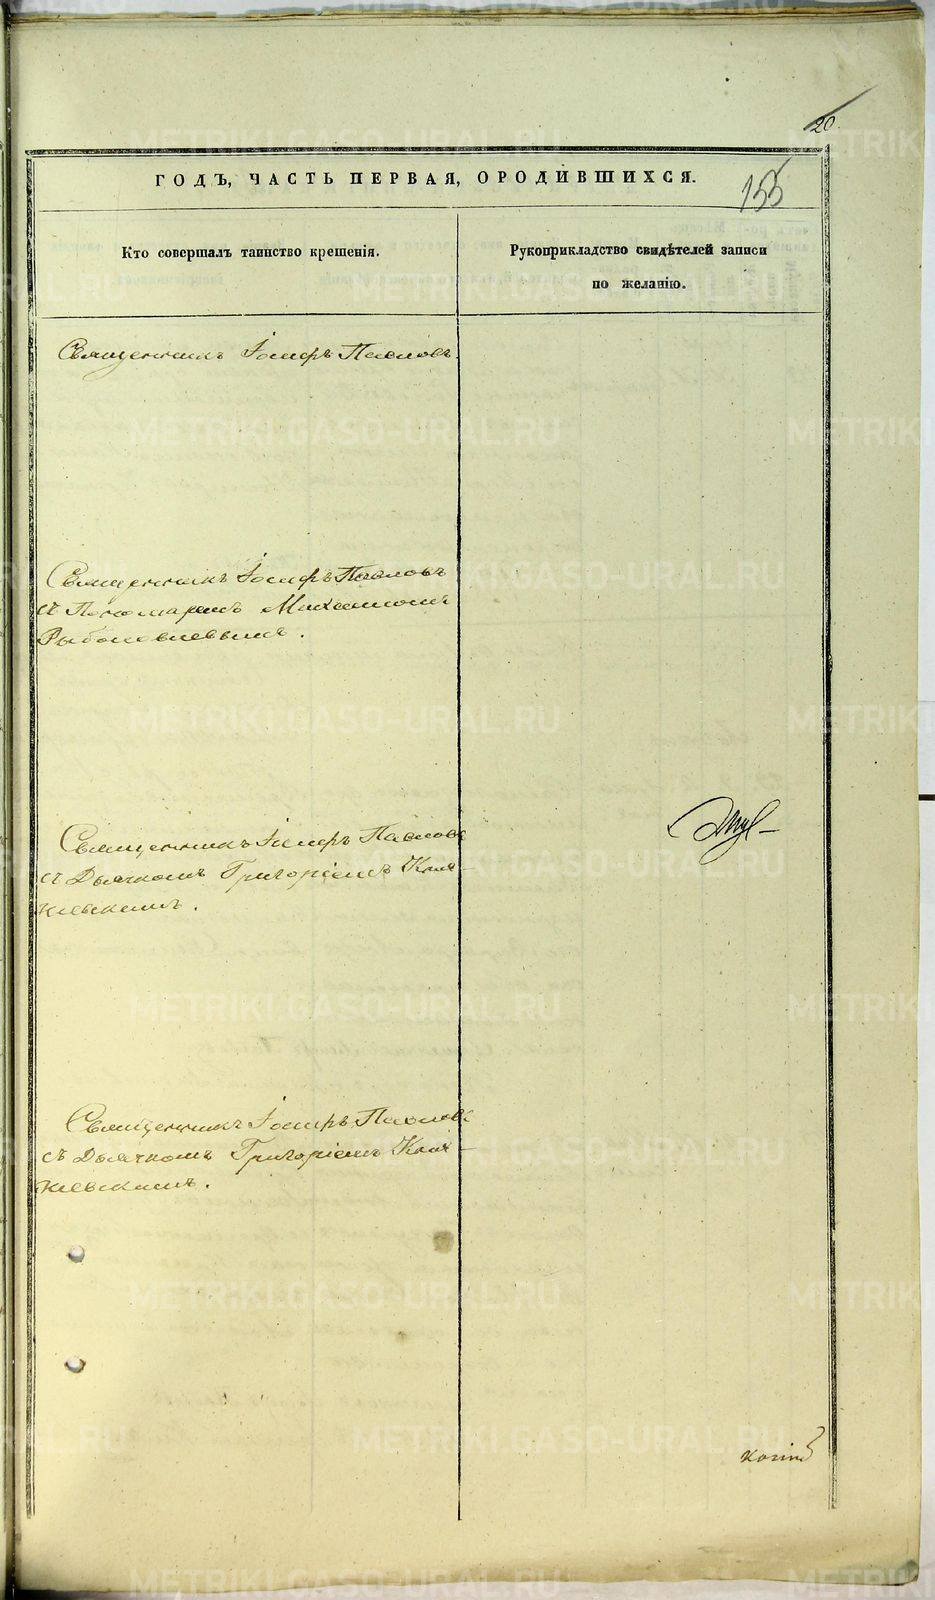 20.
ГОДЪ, ЧАСТЬ ПЕРВАЯ, О РОДИВШИХСЯ.
155
Кто совершалъ таинство крещенія.
Рукоприкладство свидѣтелей записи
по желанію.
Священникъ Іосифъ Павловъ
Священникъ Іосифъ Павловъ
съ Пономаремъ Михаиломъ
Священникъ Іосифъ Павловъ
съ Дьячкомъ Григоріемъ
Священникъ Іосифъ Павловъ
съ Дьячкомъ Григоріемъ
METRIKI.GASO-URAL.RU